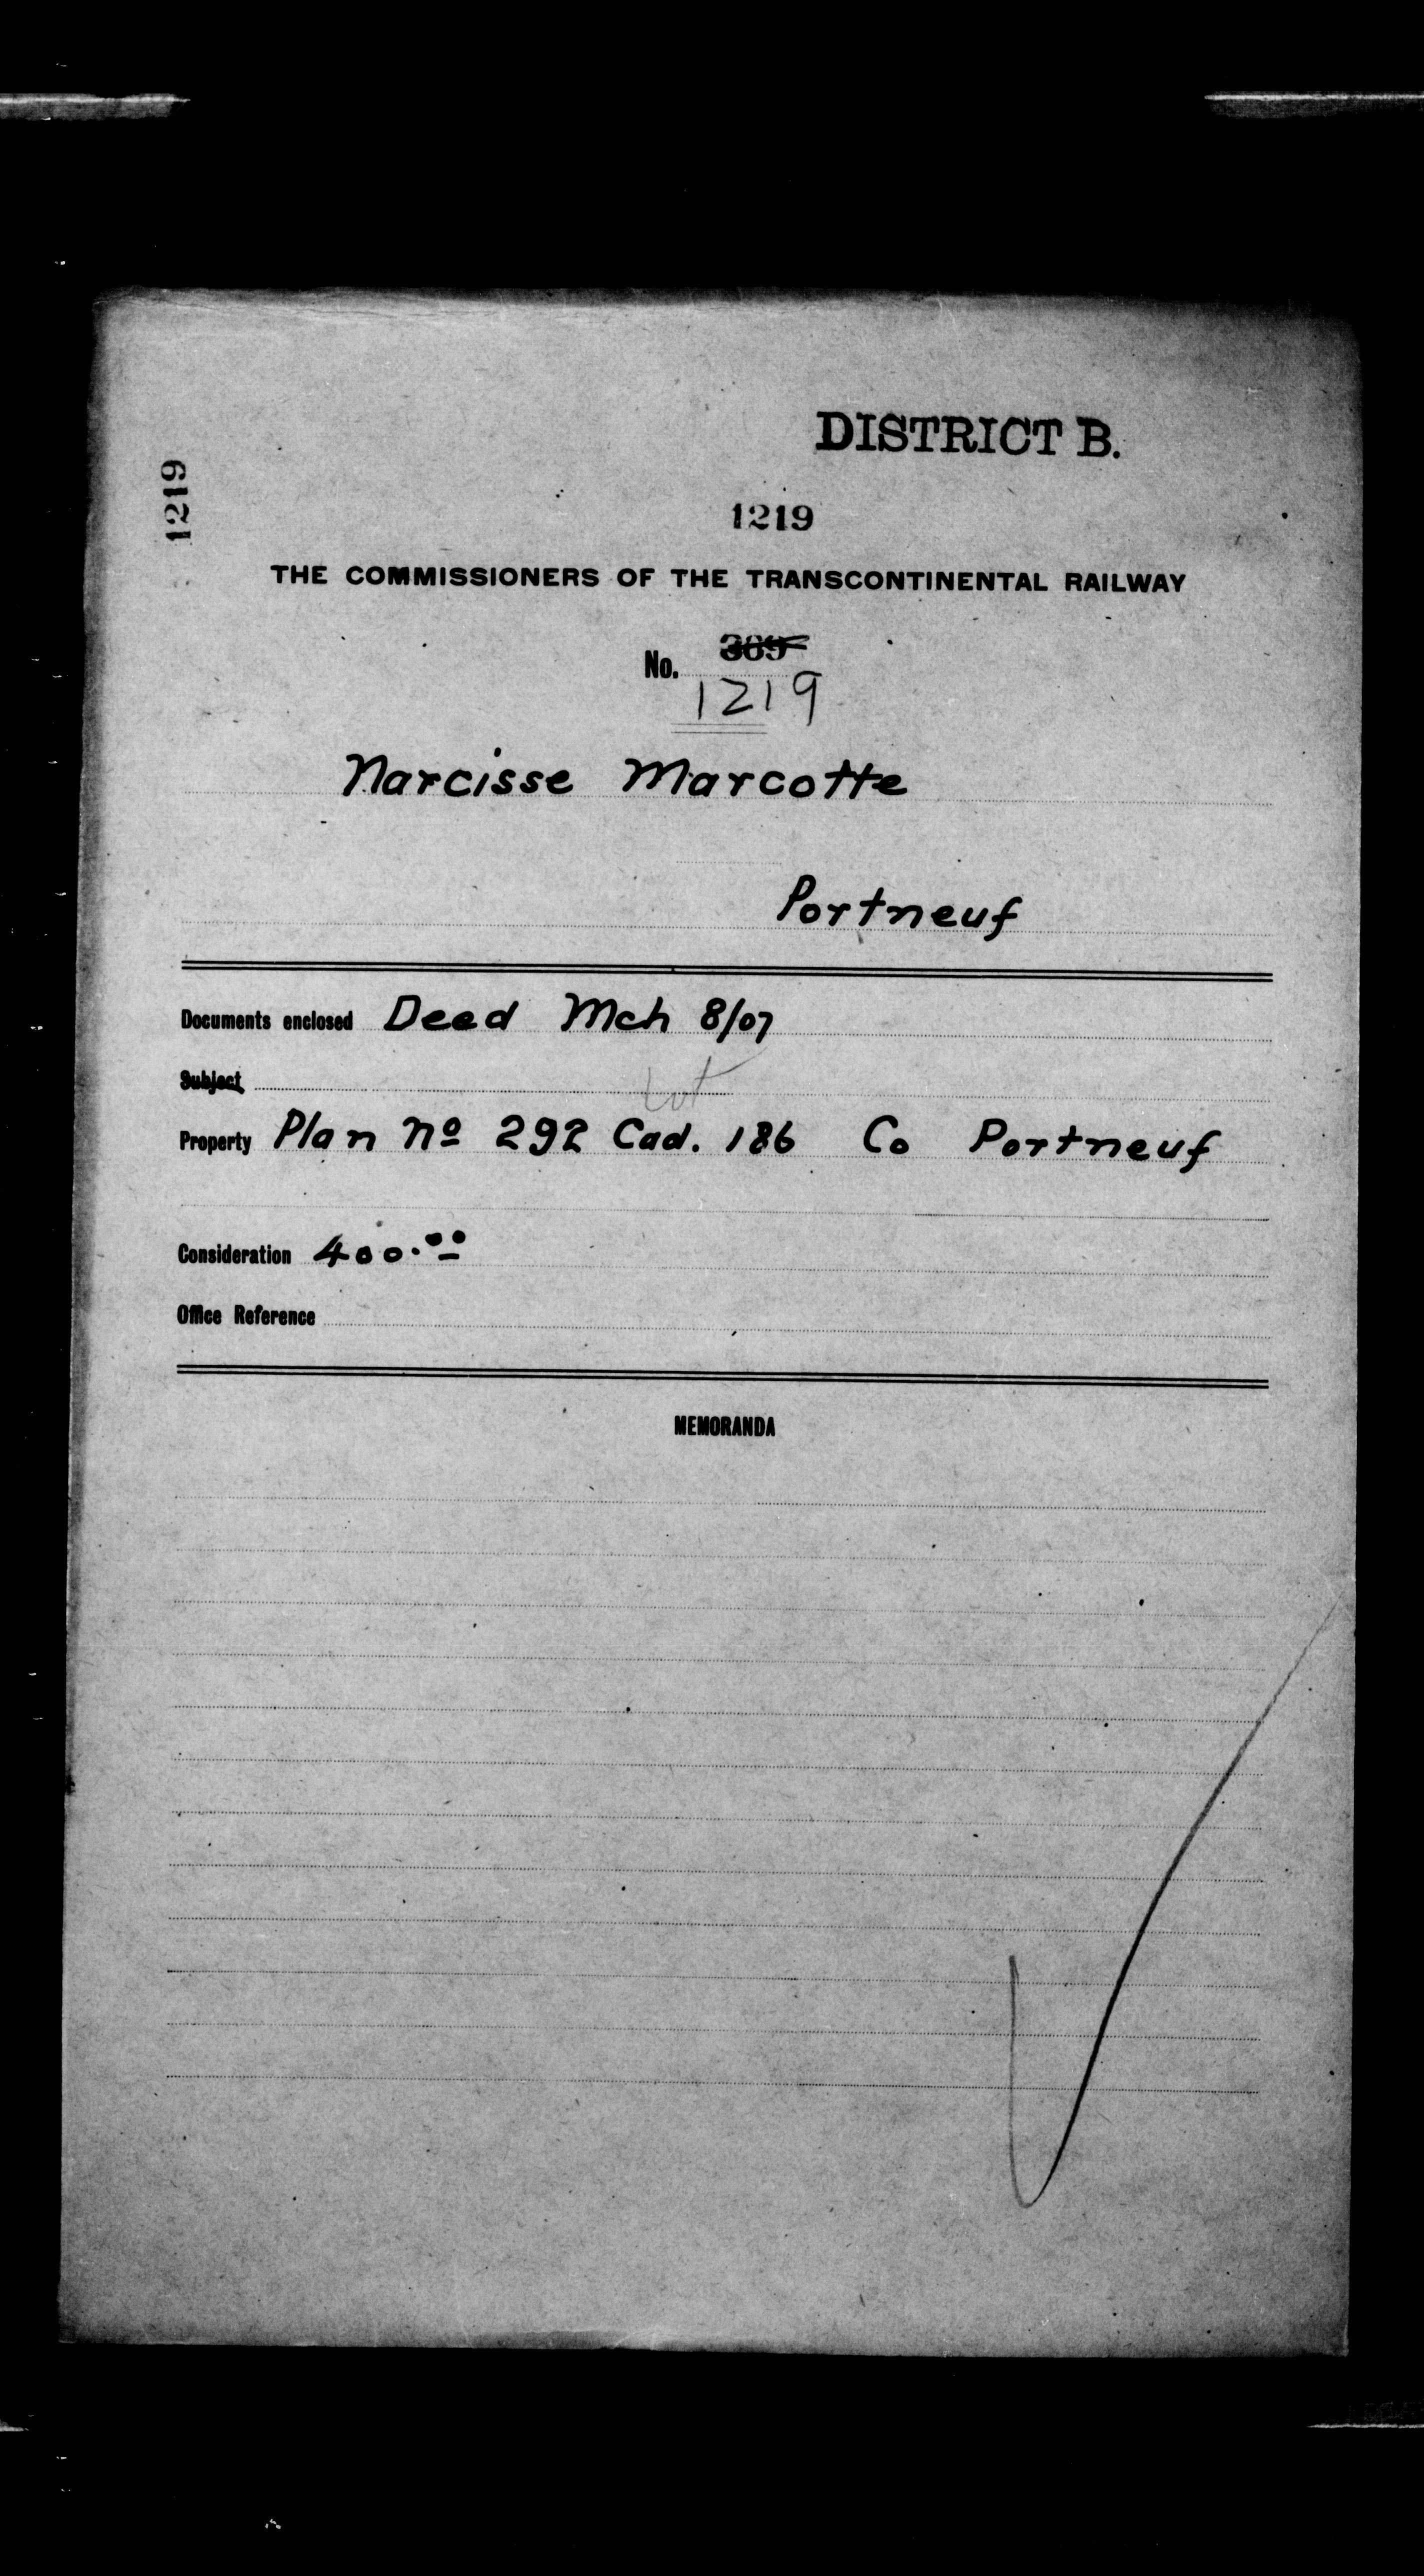 DISTRICT B.
1219
1219
THE COMMISSIONERS OF THE TRANSCONTINENTAL RAILWAY
No. 389
1219
Narcisse Marcotte
Portneuf
Documents enclosed Deed Mch 8/07
Subject
Lot
Property Plan No 292 Cad. 186 Co Portneuf
Consideration 400.00
Office Reference
MEMORANDA